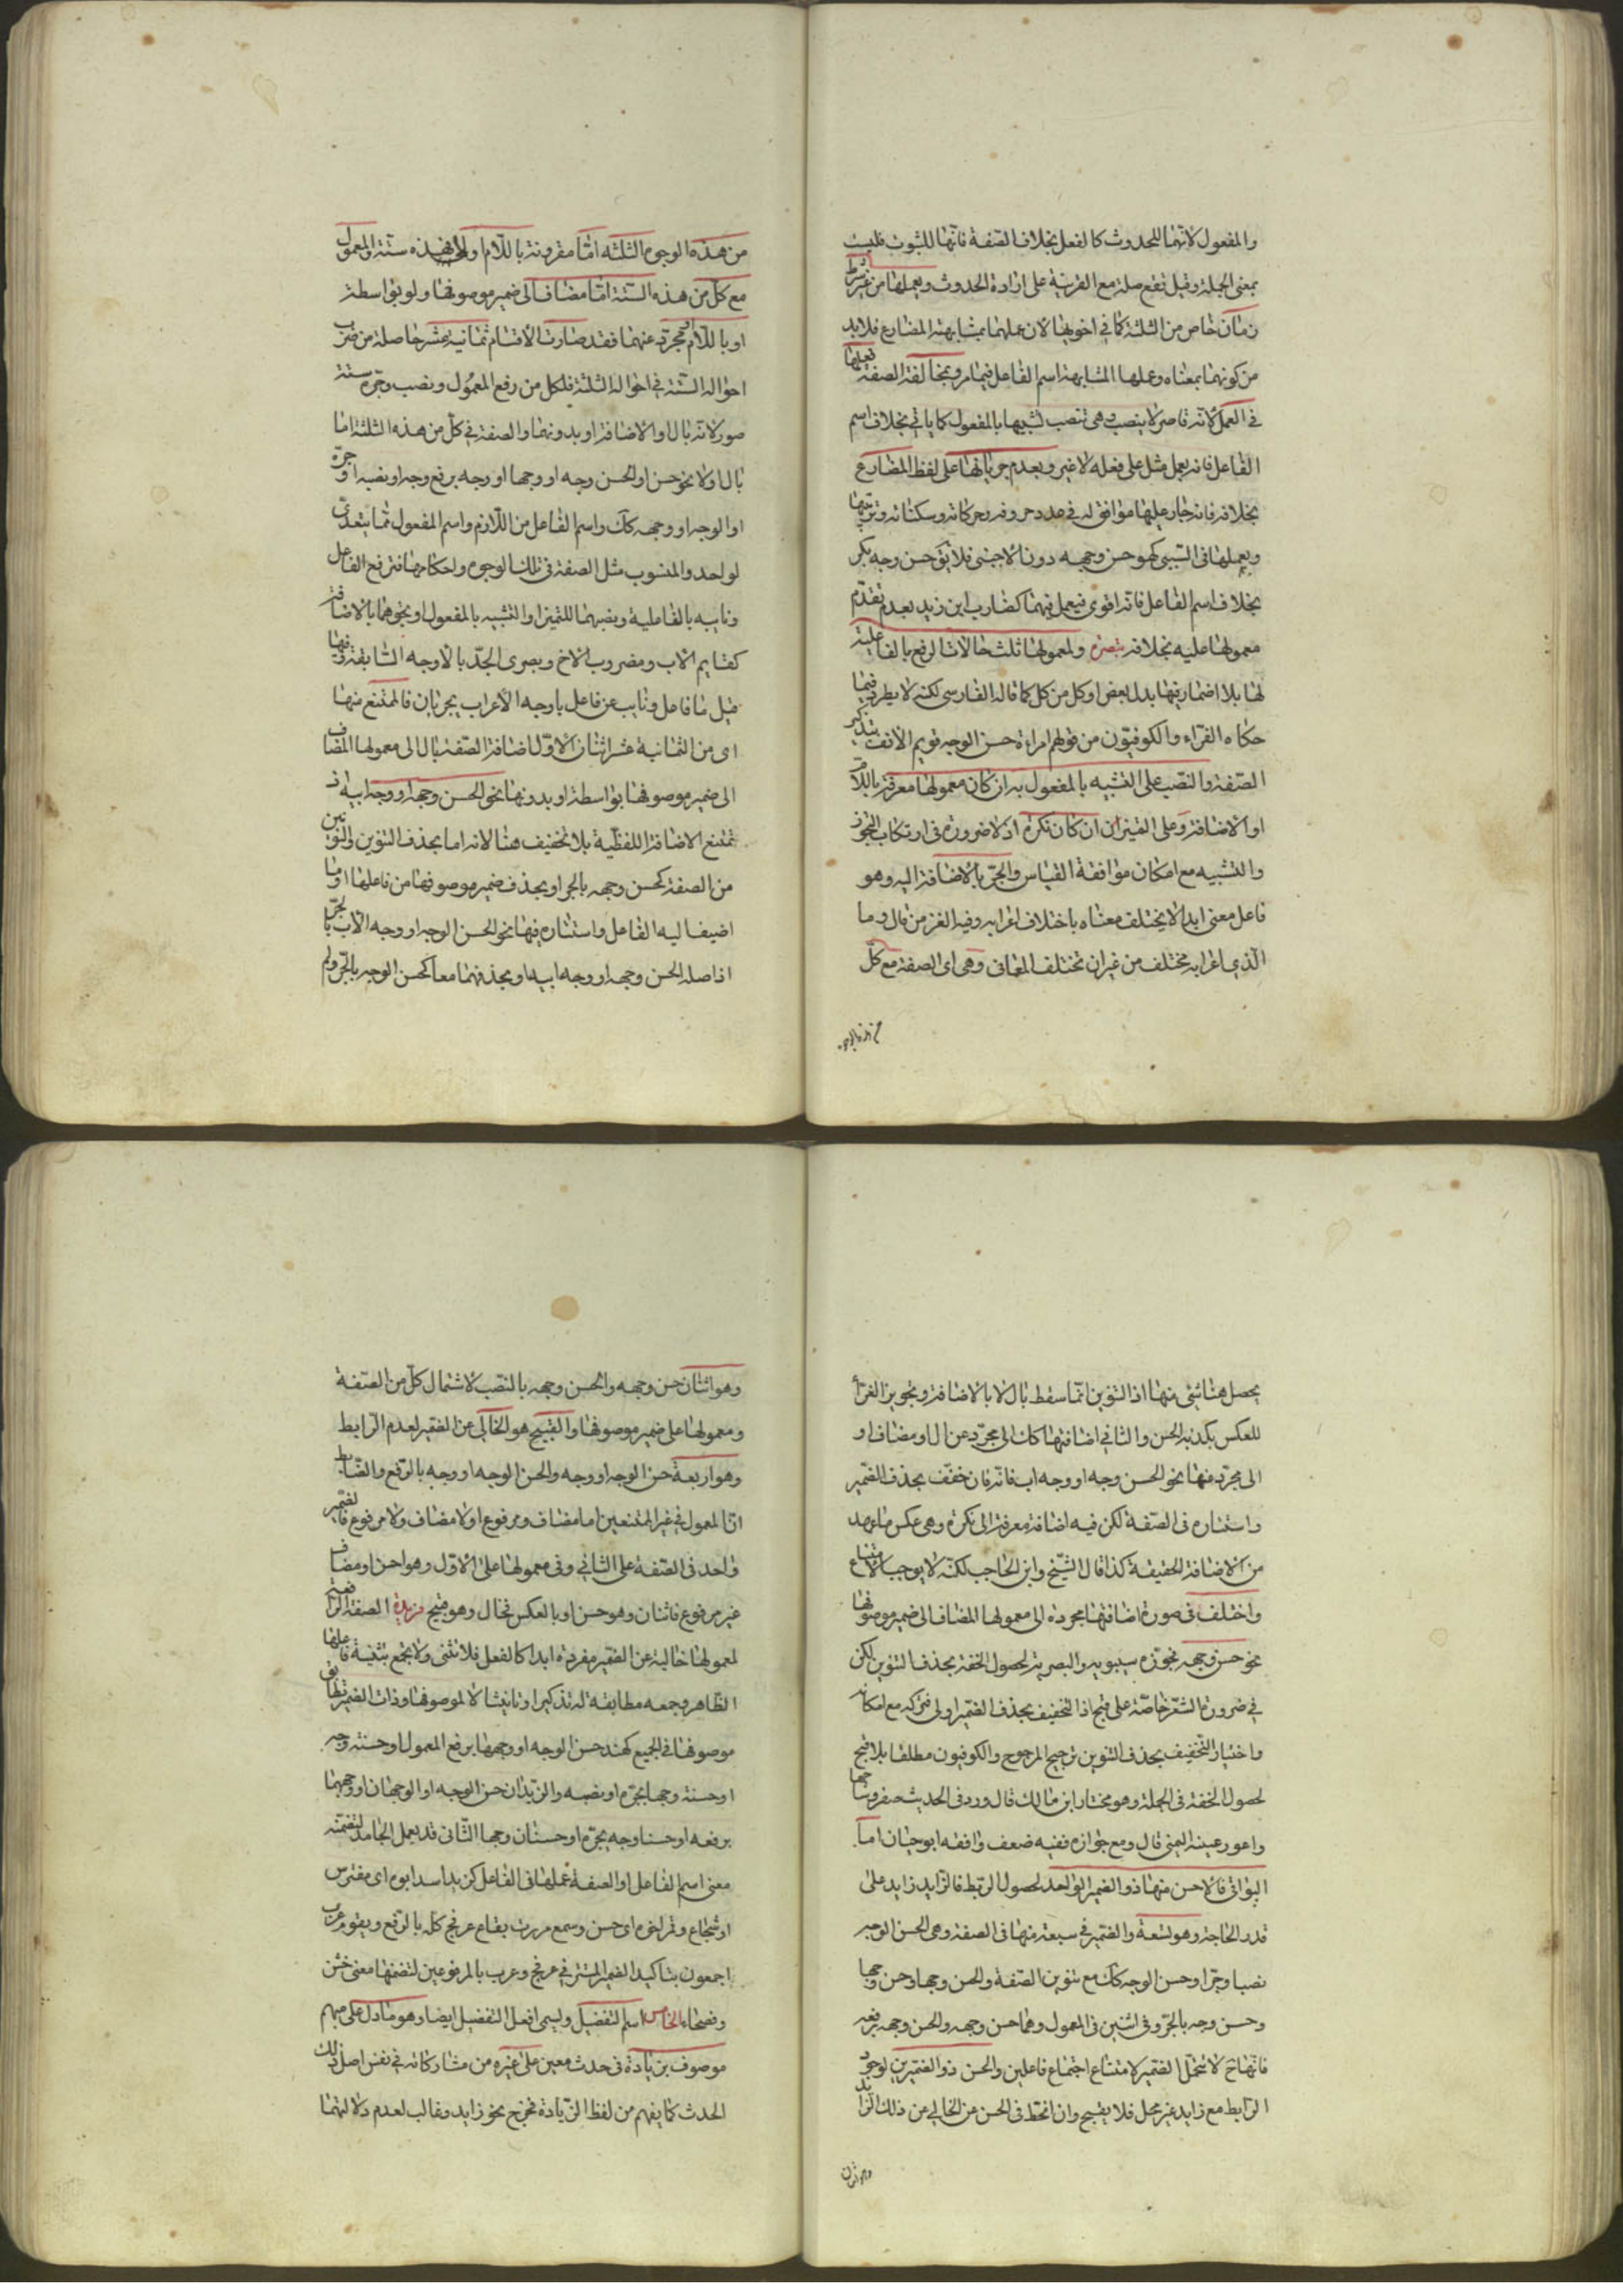 والمفعول لانهما للحدوث كالفعل بخلاف الصفة فانها للثبوت فليست
بمعنى الجملة وقيل تقع صلة مع القرينة على ارادة الحدوث وبعملها من غير شرط
زمان خاص من الثلثة كما في اخويها لان عملهما بمشابهة المضارع فلا بد
من كونهما بمعناه وعملها لمشابهة اسم الفاعل فيما مر وبمخالفة الصفة فعلها
في العمل لانه قاصر لا ينصب وهي تنصب تشبيها بالمفعول كما ياتي بخلاف اسم
الفاعل فانه يعمل مثل عمل فعله لا غير وبعدم جريانها على لفظ المضارع
بخلافه فانه جار عليها موافق له في عدد حروفه وحركاته وسكناته وترتيبها
وبعملها في السببي كهو حسن وجهه دون الاجنبي فلا يق حسن وجه بكر
بخلاف اسم الفاعل فانه اقوى فيعمل فيهما كضارب ابن زيد بعدم تقدم
معمولها عليه بخلافه تبصرة ولمعمولها ثلث حالات الرفع بالفاعلية
لها بلا اضمار فيها بدل بعض او كل من كل كما قاله الفارسي لكنه لا يطرد فيما
حكاه الفراء والكوفيون من قولهم امراة حسن الوجه قويم الانف بتذكير
الصفة والنصب على التشبيه بالمفعول به ان كان معمولها معرفة باللام
او الاضافة وعلى التميزان ان كان نكرة اذ لا ضرورة في ارتكاب التجوز
والتشبيه مع امكان موافقة القياس والجر بالاضافة اليه وهو
فاعل معنى ابدا لا يختلف معناه باختلاف اعرابه وفيه الغز من قال وما
الذي اعرابه مختلف من غير ان تختلف المعاني وهي اى الصفة مع كل
من هذه الوجوه
من هذه الوجوه الثلثة اما مقرونة باللام او لا فهذه ستة والمعمول
مع كل من هذه الستة اما مضاف الى ضمير موصوفها ولو بواسطة
او باللام او مجرد عنهما فقد صارت الاقسام ثمانية عشر حاصلة من ضرب
احواله الستة في احواله الثلثة فلكل من رفع المعمول ونصبه وجره ستة
صور لانه بال او الاضافة او بدونهما والصفة في كل من هذه الثلثة اما
بال او لا نحو حسن او الحسن وجه او وجها او وجه برفع وجه او نصبه او جره
او الوجه او وجهه كك واسم الفاعل من اللازم واسم المفعول مما يتعدى
لواحد والمنسوب مثل الصفة في تلك الوجوه واحكامها فترفع الفاعل
ونايبه بالفاعلية ونصبهما للتميز او التشبيه بالمفعول او بجرهما بالاضافة
كقايم الاب ومضروب الاخ وبصرى الجد بالاوجه السابقة وفيها
قيل ما فاعل ونايب عن فاعل باوجه الاعراب يجريان فالممتنع منها
اى من الثمانية عشر اثنان الاول اضافة الصفة بال الى معمولها المضاف
الى ضمير موصوفها بواسطة او بدونها نحو الحسن وجهه او وجه ابيه اذ
تمتنع الاضافة اللفظية بلا تخفيف هنا لانه اما بحذف التنوين والنونين
من الصفة كحسن وجهه بالجر او بحذف ضمير موصوفها من فاعلها او ما
اضيف اليه الفاعل واستتاره فيها نحو الحسن الوجه او وجه الاب بالجر
اذ اصله الحسن وجهه او وجه ابيه او بحذفهما معا كحسن الوجه بالجر ولم
يحصل هنا شئ منها اذ التنوين انما سقط بال لا بالاضافة وتجويز الفراء
للعكس يكذبه الحسن والثاني اضافتها كك الى مجرد عن ال او مضاف او
الى مجرد منها نحو الحسن وجه او وجه اب فانه فان خفف بحذف الضمير
واستتاره في الصفة لكن فيه اضافة معرفة الى نكرة وهي عكس ما يعهد
من الاضافة الحقيقية كذا قال الشيخ وابن الحاجب لكنه لا يوجب الامتناع
واختلف في صورة اضافتها مجردة الى معمولها المضاف الى ضمير موصوفها
نحو حسن وجهه فجوزه سيبويه والبصرية لحصول الخفة بحذف التنوين لكن
في ضرورة الشعر خاصة على قبح اذ التخفيف بحذف الضمير اولى فتركه مع امكانه
واختيار التخفيف بحذف التنوين ترجيح المرجوح والكوفيون مطلقا بلا قبح
لحصول الخفة في الجملة وهو مختار ابن مالك قال ورد في الحديث صفر وشاحها
واعور عينه اليمنى قال ومع جوازه ففيه ضعف وافقه ابو حيان اما
البواقي فالاحسن منها ذو الضمير الواحد لحصول الربط فالزايد زايد على
قدر الحاجة وهو تسعة والضمير في سبعة منها في الصفة وهي الحسن الوجه
نصبا وجرا وحسن الوجه كك مع تنوين الصفة والحسن وجها وحسن وجها
وحسن وجه بالجر وفي اثنين في المعمول وهما حسن وجهه والحسن وجهه برفعه
فانها ح لا تتحمل الضمير لامتناع اجتماع فاعلين والحسن ذو الضميرين لوجود
الرابط مع زايد غير مخل فلا يقبح وان انحط في الحسن عن الخالي عن ذلك الزايد
وهو اثنان
وهو اثنان حسن وجهه والحسن وجهه بالنصب لاشتمال كل من الصفة
ومعمولها على ضمير موصوفها والقبيح هو الخالي عن الضمير لعدم الرابط
وهو اربعة حسن الوجه او وجه والحسن الوجه او وجه بالرفع والضابط
ان المعمول في غير الممتنعين اما مضاف ومرفوع او لا مضاف ولا مرفوع فالضمير
واحد في الصفة على الثاني وفي معمولها على الاول وهو احسن او مضاف
غير مرفوع فاثنان وهو حسن او بالعكس فخال وهو قبيح مزيدة الصفة الرافعة
لمعمولها خالية عن الضمير مفردة ابدا كالفعل فلا تثنى ولا تجمع بتثنية فاعلها
الظاهر وجمعه مطابقة له تذكيرا وتانيثا لا لموصوفها وذات الضمير تطابق
موصوفها في الجميع كهند حسن الوجه او وجهها برفع المعمول او حسنة وجه
او حسنة وجها بجره او نصبه والزيدان حسن الوجه او الوجهان او وجههما
برفعه او حسنا وجه بجره او حسنان وجها الثاني قد يعمل الجامد لتضمنه
معنى اسم الفاعل او الصفة عملها في الفاعل كزيد اسد ابوه اى مفترس
او شجاع وقمر اى حسن وسمع مررت بقاع عرفج كله بالرفع وبقوم عرب
اجمعون بتاكيد الضمير المستتر في عرفج وعرب بالمرفوعين لتضمنها معنى خشن
وفصحاء الخامس اسم التفضيل ويسمى افعل التفضيل ايضا وهو ما دل على مبهم
موصوف بزيادة في حدث معين على غيره من مشاركاته في نفس اصل ذلك
الحدث كما يفهم من لفظ الزيادة فخرج نحو زايد وغالب لعدم دلالتهما